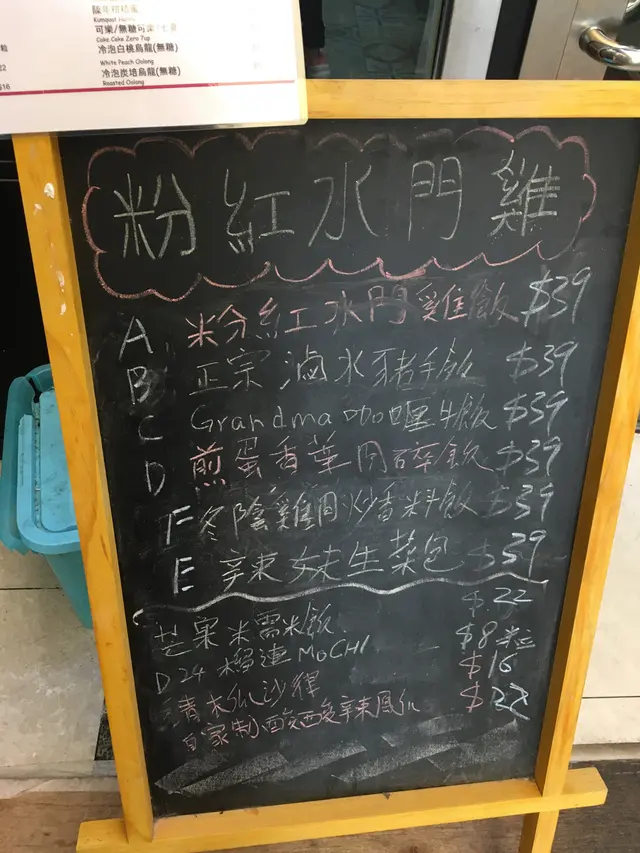 陳年柑桔蜜
Kumquat Honey
可樂/無糖可樂/七喜
Coke Coke Zero 7up
冷泡白桃烏龍(無糖)
White Peach Oolong
冷泡炭培烏龍(無糖)
Roasted Oolong
22
$16
粉紅水門雞
A 粉紅水門雞飯 $39
B 正宗滷水豬手飯 $39
C Grandma 牛飯 $39
D 煎蛋香葉肉碎飯 $39
F 冬陰雞肉炒香料飯 $39
E 辣妹生菜包 $39
芒果米需米飯 $22
D24 榴連 MOCHI $8粒
青木瓜沙律 $16
自家制酸辣鳳爪 $22